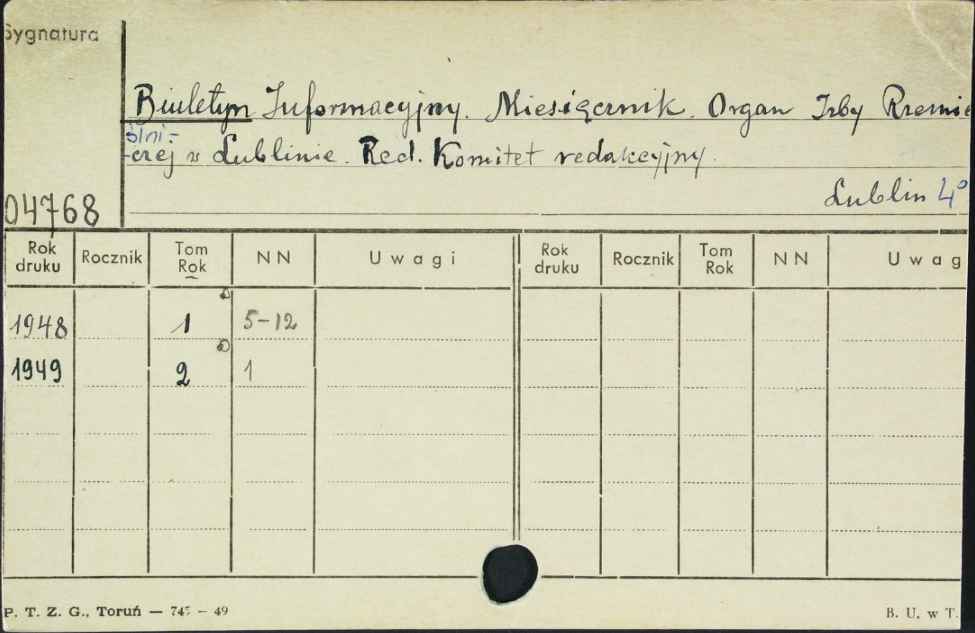 Sygnatura
Biuletyn Informacyjny. Miesięcznik. Organ Izby Rzemie
ślni-
czej w Lublinie. Red. Komitet redakcyjny.
Lublin 4°
04768
Rok druku Rocznik Tom Rok NN Uwagi Rok druku Rocznik Tom Rok NN Uwag
1948 1 5-12
1949 2 1
P. T. Z. G., Toruń — 747 – 49 B. U. w T.